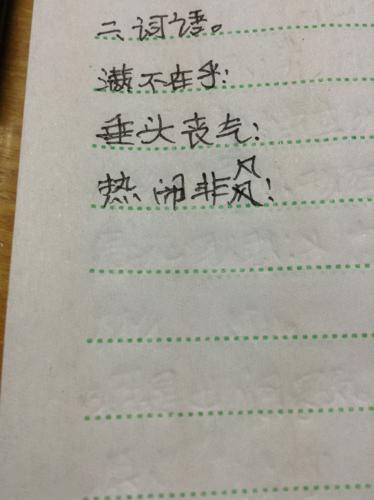 二词语。
满不在乎:
垂头丧气:
热闹非风: